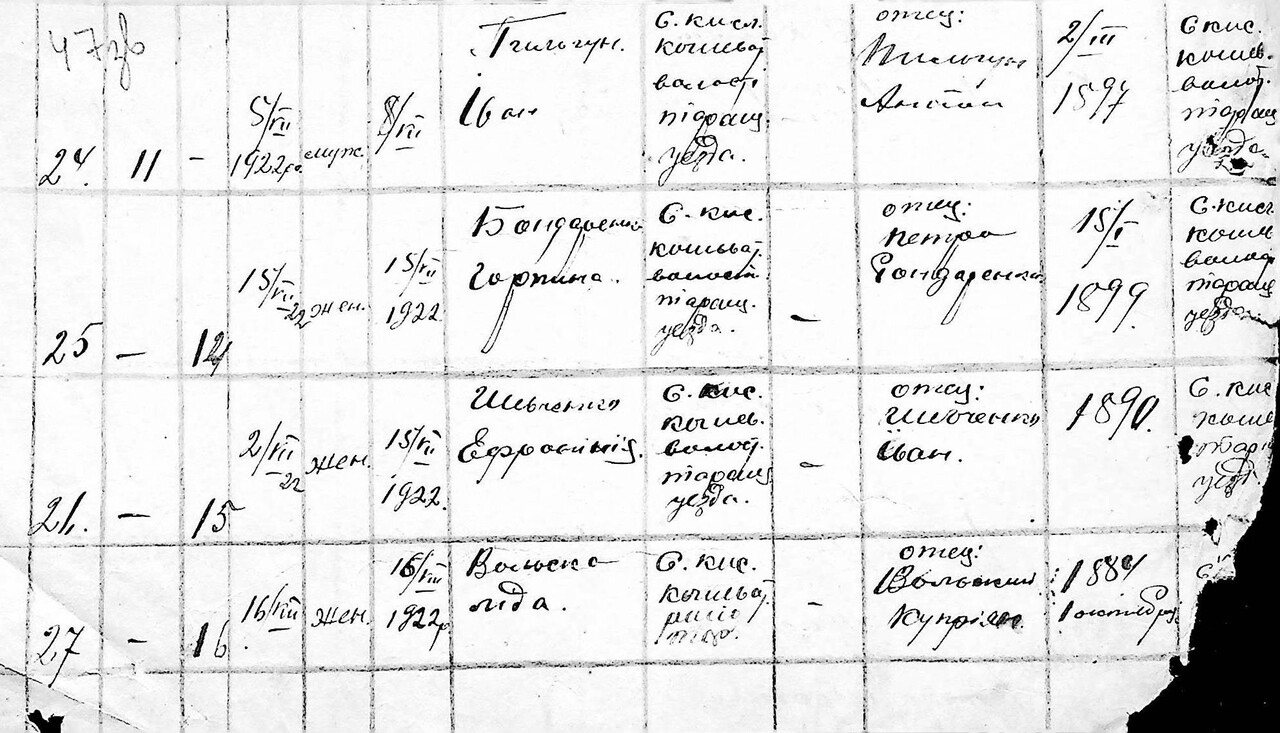 47зв
24. 11 - 5/VII 1922го муж. 8/VII
Гкильгун.
Іван
С. кисл.
кошеват.
волост.
таращ.
уезда.
отец:
Антон
2/III
1897
С кис.
кошев.
волост.
таращ
уезда.
25 - 14 15/VII 22 жен. 15/VII 1922
Бондаренко
Горпина.
С. кис.
кошеват.
волост.
таращ.
уезда.
-
отец:
Петро
Бондаренко
15/I
1899.
С. кисл
кошев
волос
таращ
уезда
21. - 15 2/VII 22 жен. 15/VII 1922.
Шевченко
Ефросинія.
С. кис.
кошев.
волост.
таращ
уезда.
-
отец:
Шевченко
Іван.
1890.
С. кис
кошев
тара
уезд.
27 - 16. 16/VII жен. 16/VII 1922г
Вольска
лида.
С. кис.
кошеват.
-
отец:
Вольский
Купріян.
1884
1 октября